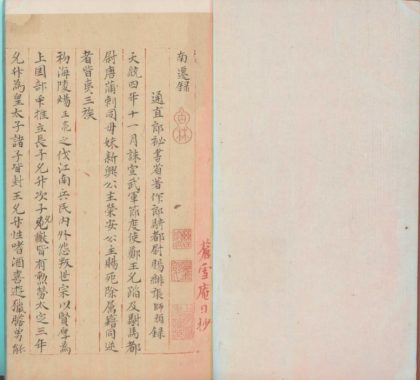 南遷錄
通直郎秘書省著作郎騎都尉賜緋張師顏錄
天統四年十一月誅宣武軍節度使鄭王允蹈及駙馬都
尉唐蒲剌同母妹新興公主榮安公主賜死除屬籍同逆
者皆夷三族
初海陵煬王亮之伐江南兵民內外怨叛世宗以賢爲
上國部軍推立長子允升次子允猷皆有勳勞大定三年
允升為皇太子諸子皆封王允升性嗜酒喜遊獵勝男能
龍雪庵日抄